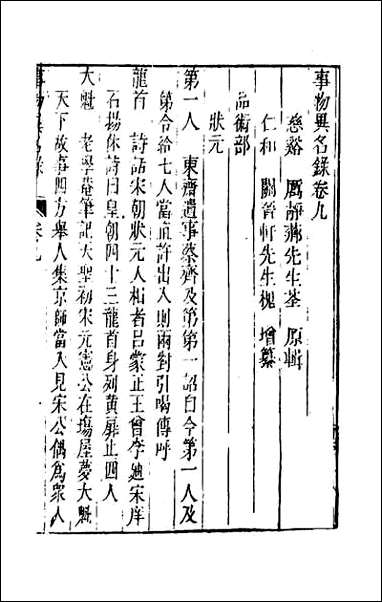 事物異名錄卷九
慈谿 厲靜薌先生荃 原輯
仁和 關晉軒先生槐 增纂
品術部
狀元
第一人 東齋遺事蔡齊及第第一詔自今第一人及
第令給七人當直許出入則兩對引喝傳呼
龍首 詩話宋朝狀元人相者呂蒙正王曾李迪宋庠
石揚休詩曰皇朝四十三龍首身列黃扉止四人
大魁 老學庵筆記天聖初宋元憲公在塲屋夢大魁
天下故事四方舉人集京師當入見宋公偶為衆人